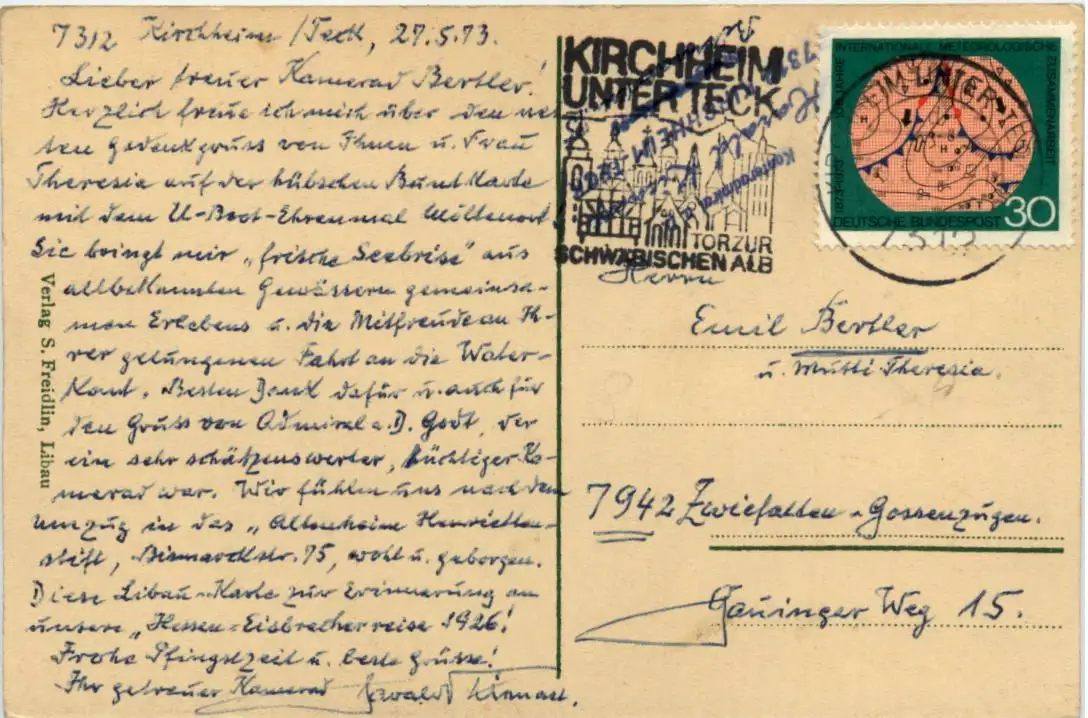 7312 Kirchheim/Teck, 27.5.73.
Lieber treuer Kamerad Bertler!
Herzlich freue ich mich über den net-
ten Gedenkgruss von Ihnen u. Frau
Theresia auf der hübschen Buntkarte
mit dem U-Boot-Ehrenmal Möltenort.
Sie bringt mir „frische Seebrise" aus
allbekannten Gewässern gemeinsa-
men Erlebens u. die Mitfreude an Ih-
rer gelungenen Fahrt an die Water-
kant. Besten Dank dafür u. auch für
den Gruss von Admiral a.D. Godt, der
ein sehr schätzenswerter, tüchtiger Ka-
merad war. Wir fühlen uns nach dem
Umzug in das „Altenheim Henrietten-
stift, Bismarckstr. 75, wohl u. geborgen.
Diese Libau-Karte zur Erinnerung an
unsere „Hessen-Eisbrecherreise 1926!
Frohe Pfingstzeit u. beste Grüsse!
Ihr getreuer Kamerad Ewald
Verlag S. Freidlin, Libau
KIRCHHEIM
UNTER TECK
TOR ZUR
SCHWÄBISCHEN ALB
100 JAHRE INTERNATIONALE METEOROLOGISCHE ZUSAMMENARBEIT
1873-1973
DEUTSCHE BUNDESPOST 30
HEIM UNTER TECK
7312
Herrn
Emil Bertler
u. Mutti Theresia.
7942 Zwiefalten-Gossenzugen.
Gauinger Weg 15.